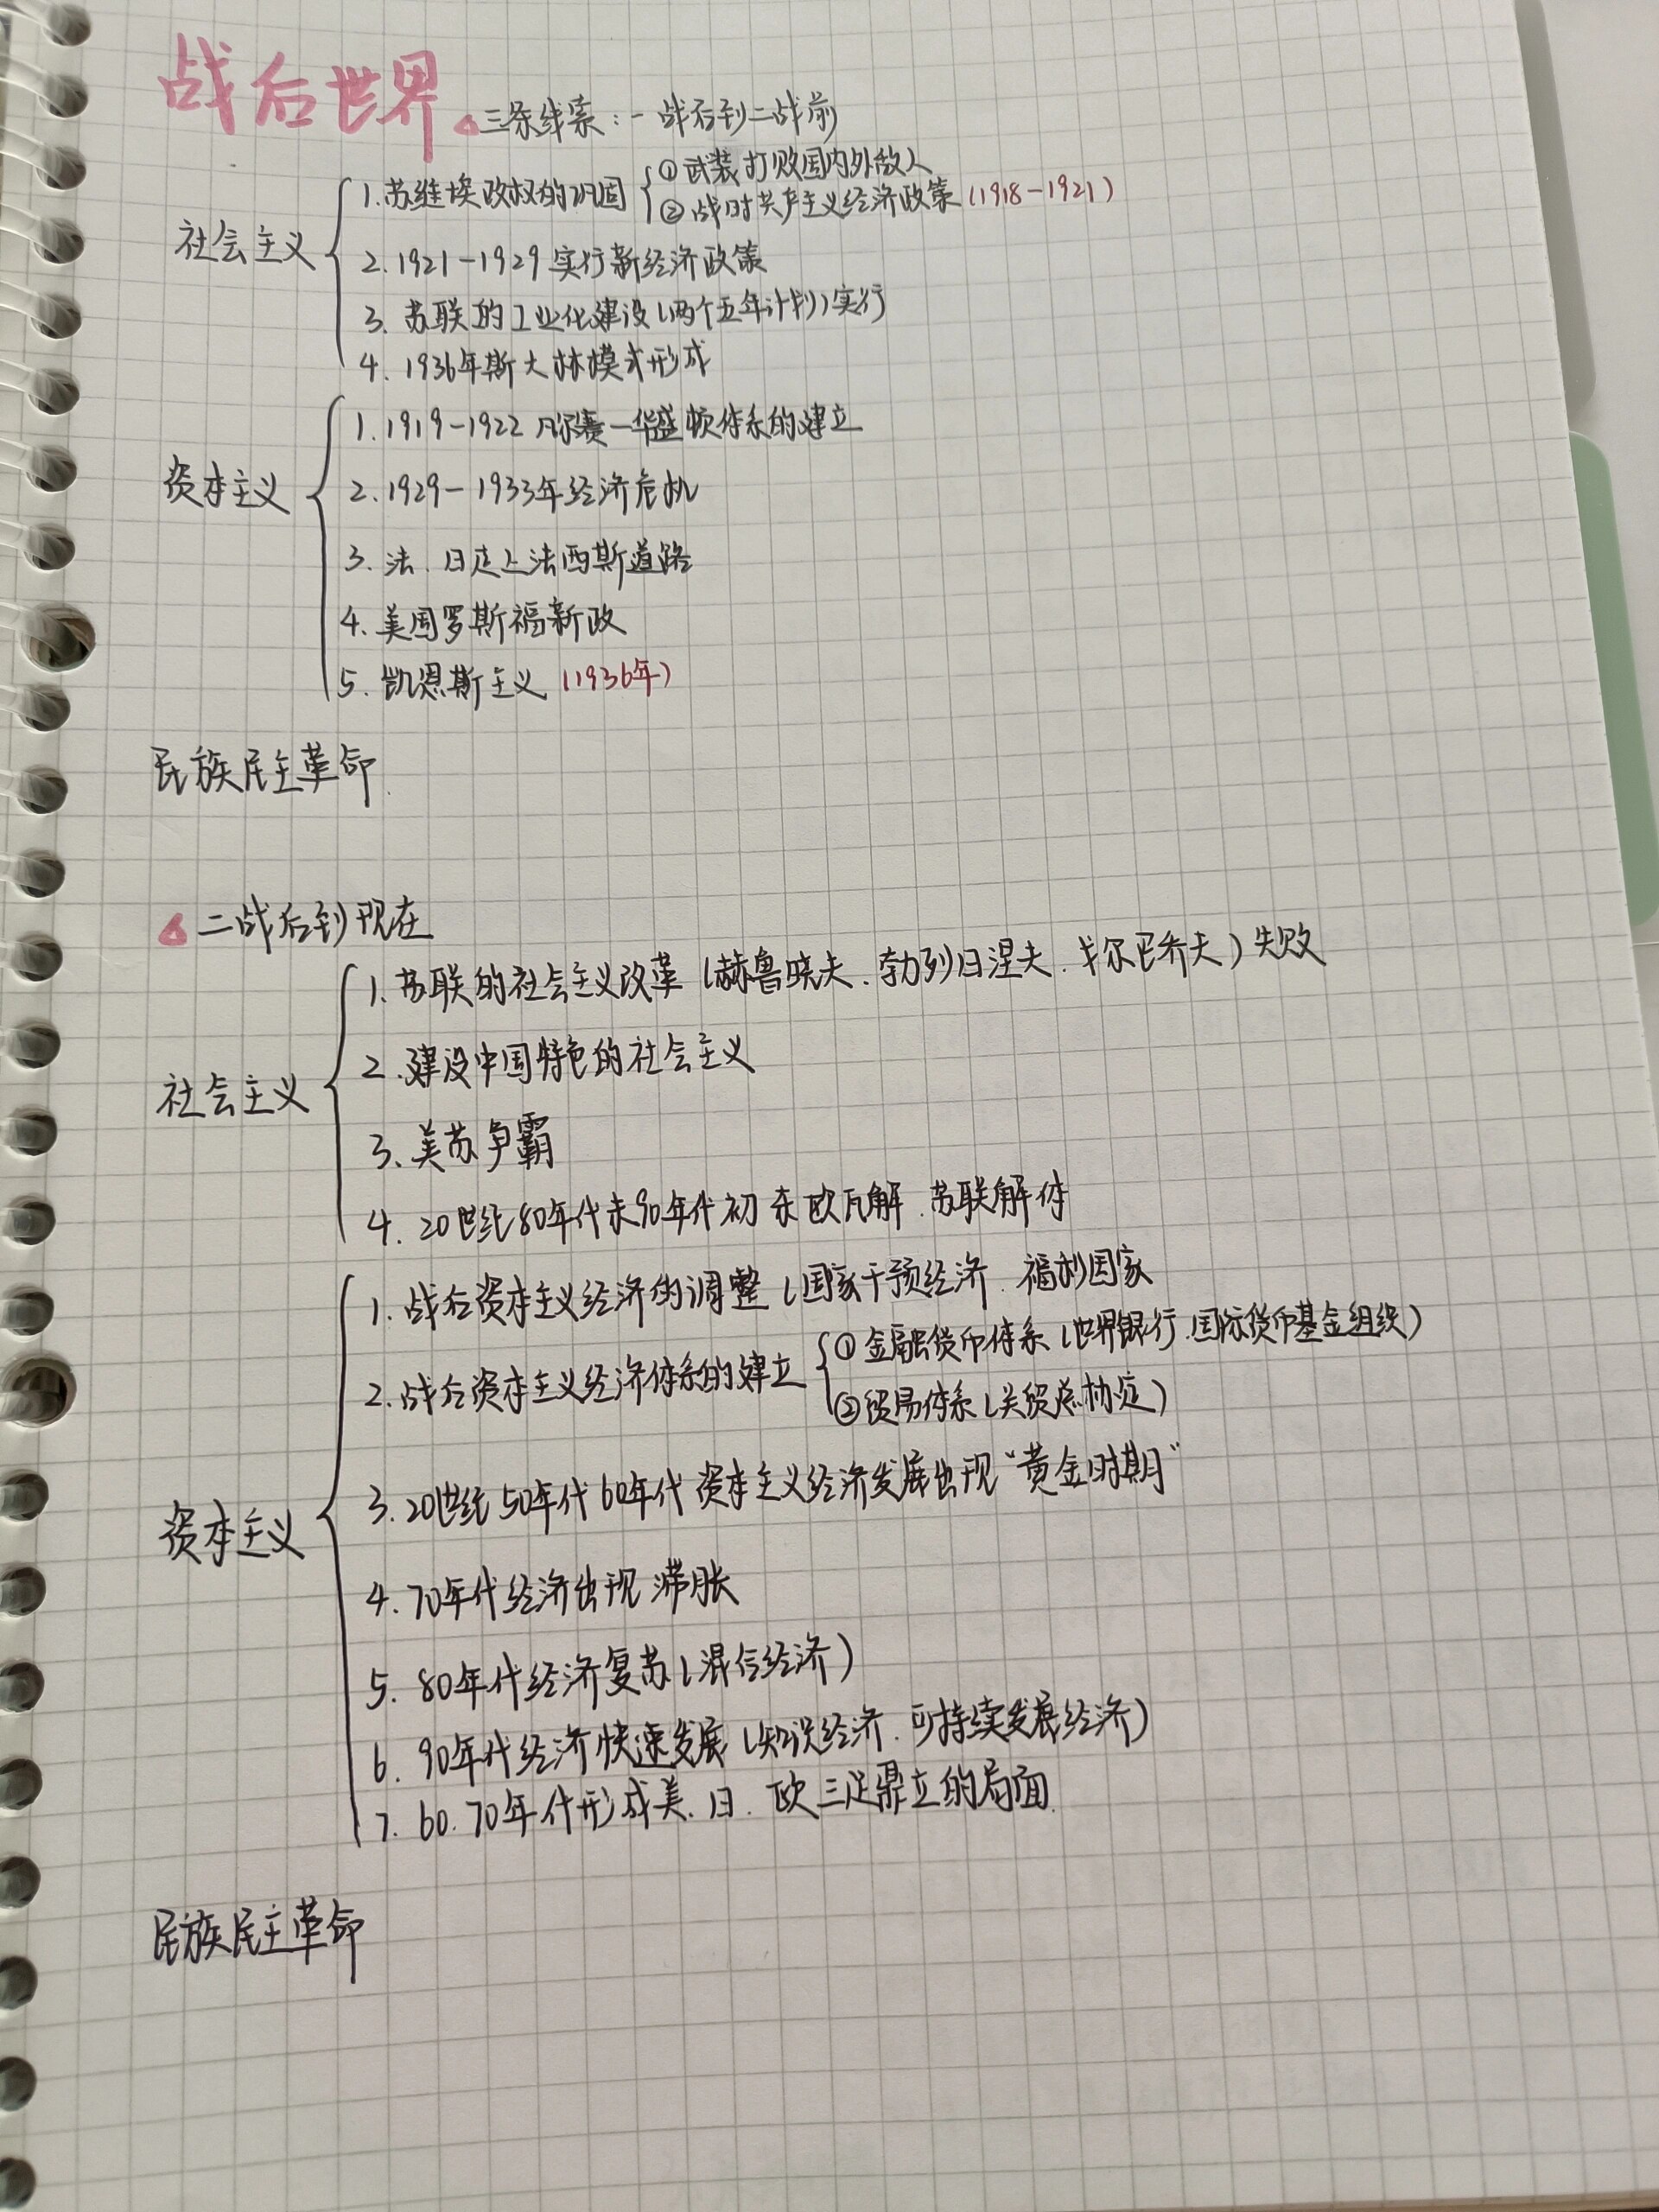 战后世界
三条线索:一战后到二战前
社会主义
1.苏维埃政权的巩固
①武装打败国内外敌人
②战时共产主义经济政策(1918-1921)
2.1921-1929实行新经济政策
3.苏联的工业化建设(两个五年计划)实行
4.1936年斯大林模式形成
资本主义
1.1919-1922凡尔赛一华盛顿体系的建立
2.1929-1933年经济危机
3.法.日走上法西斯道路
4.美国罗斯福新政
5.凯恩斯主义(1936年)
民族民主革命
二战后到现在
社会主义
1.苏联的社会主义改革(赫鲁晓夫.勃列日涅夫.戈尔巴乔夫)失败
2.建设中国特色的社会主义
3.美苏争霸
4.20世纪80年代末90年代初东欧瓦解.苏联解体
资本主义
1.战后资本主义经济的调整(国家干预经济.福利国家
2.战后资本主义经济体系的建立
①金融货币体系(世界银行.国际货币基金组织)
②贸易体系(关贸总协定)
3.20世纪50年代60年代资本主义经济发展出现“黄金时期”
4.70年代经济出现滞胀
5.80年代经济复苏(混合经济)
6.90年代经济快速发展(知识经济.可持续发展经济)
7.60.70年代形成美.日.欧三足鼎立的局面.
民族民主革命